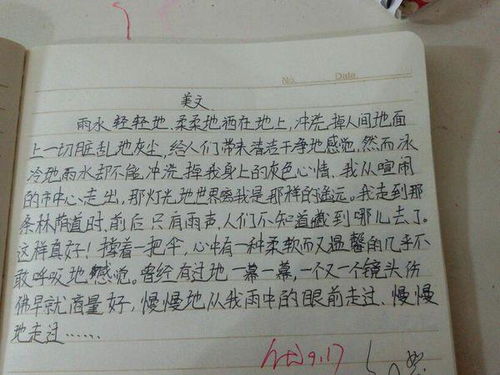 No. Date
美文
雨水轻轻地、柔柔地洒在地上,冲洗掉人间地面
上一切脏乱地灰尘,给人们带来洁净地感觉,然而冰
冷地雨水却不能冲洗掉我身上的灰色心情,我从喧闹
的市中心走出,那灯光地世界离我是那样的遥远。我走到那
条林荫道时,前后只有雨声,人们不知道藏到哪儿去了。
这样真好!撑着一把伞,心中有一种柔软而又温馨的几乎不
敢呼吸地感觉。曾经有过地一幕一幕,一个又一个镜头仿
佛早就商量好,慢慢地从我雨中的眼前走过、慢慢
地走过……
9.17